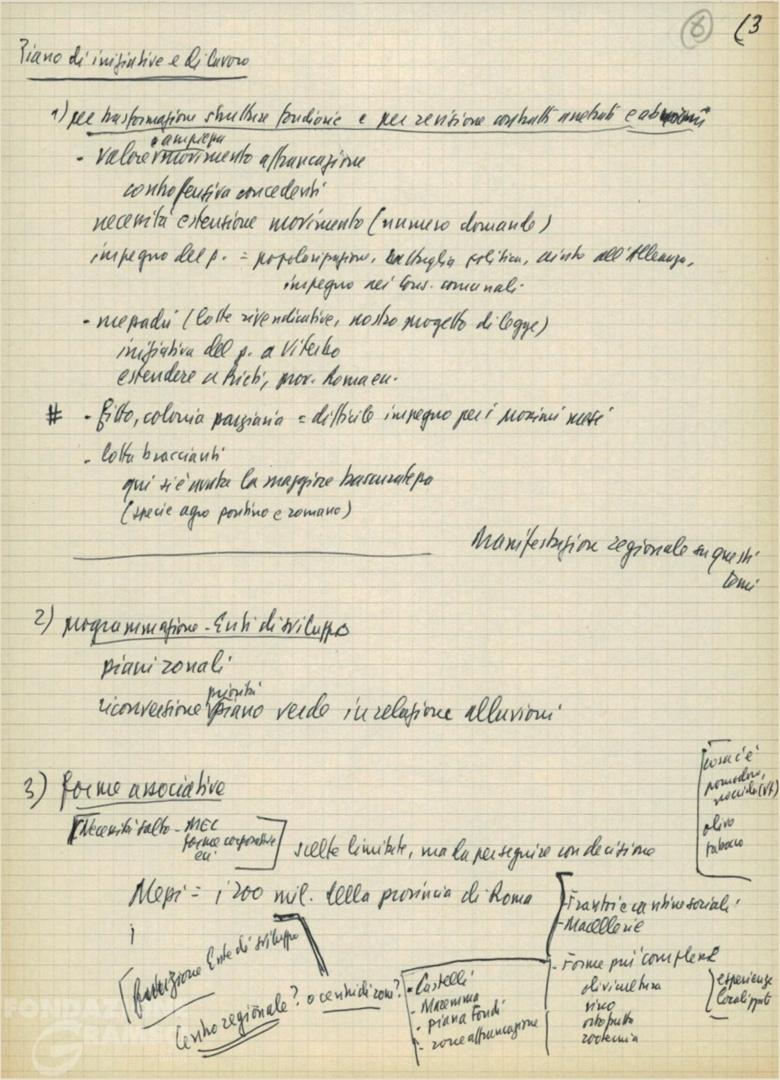 6 (3
Piano di iniziative e di lavoro
1) per trasformazione strutture fondiarie e per revisione contratti arretrati e abnormi
- valore e ampiezza movimento affrancazione
controffensiva concedenti
necessità estensione movimento (numero domande)
impegno del p. = popolarizzazione, battaglia politica, aiuto all'Alleanza,
impegno nei Cons. comunali.
- mezzadri (lotte rivendicative, nostro progetto di legge)
iniziativa del p. a Viterbo
estendere a Rieti, prov. Roma ecc.
# - fitto, colonia parziaria = difficile impegno per i prossimi mesi
- lotta braccianti
qui si è avuta la maggiore trascuratezza
(specie agro pontino e romano)
Manifestazione regionale su questi
temi
2) programmazione - Enti di sviluppo
piani zonali
riconversione priorità piano verde in relazione alluvioni
3) forme associative
[Necessità salto - MEC
forme corporative
ecc.]
scelte limitate, ma da perseguire con decisione
[cosa c'è
pomodoro,
nocciole (VT)
olivo
tabacco
Mezzi = i 200 mil. della provincia di Roma
- Frantoi e cantine sociali
- Macellerie
- Forme più complesse
olivicoltura
vino
ortofrutta
zootecnia
esperienze
localizzate
i
funzione Ente di sviluppo
Centro regionale? o centri di zona?
- Castelli
- Maremma
- piana Fondi
- zone affrancazione
FONDAZIONE
GRAMSCI